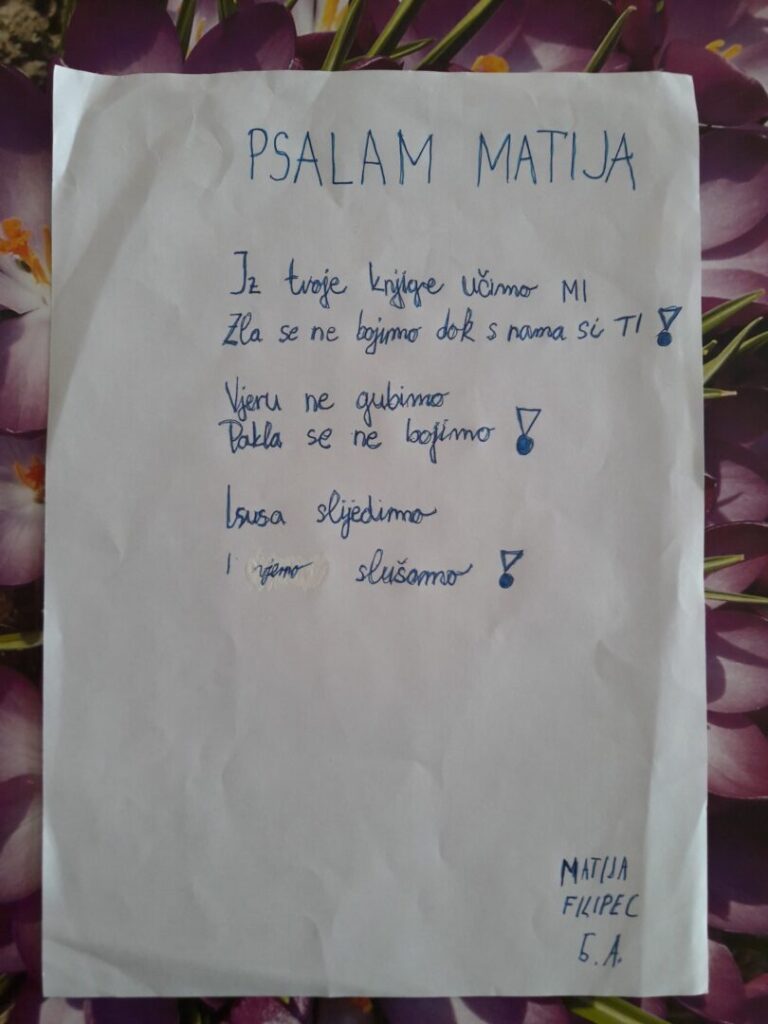 PSALAM MATIJA
Iz tvoje knjige učimo MI
Zla se ne bojimo dok s nama si TI!
Vjeru ne gubimo
Pakla se ne bojimo!
Isusa slijedimo
I njemo slušamo!
MATIJA
FILIPEC
5.A.